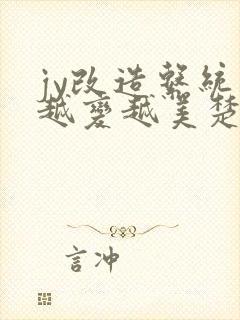 jy改造系統
越變越美楚
言冲